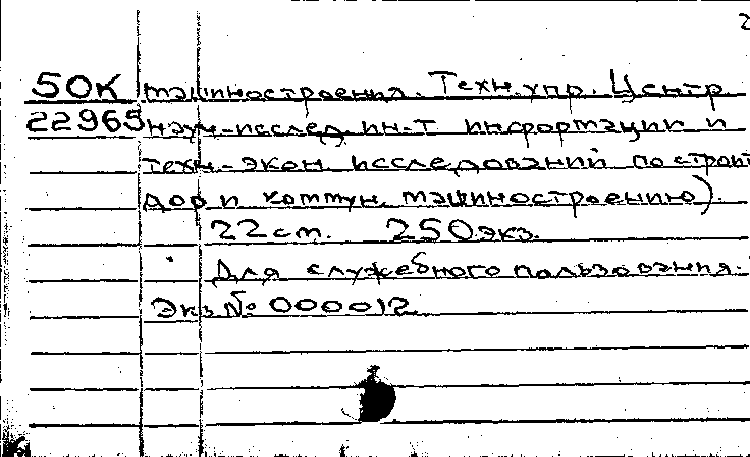 2
50К машиностроения. Техн. упр. Центр
22965 науч.-исслед. ин-т информации и
техн.-экон. исследований по строит
дор и коммун. машиностроению).
22 см. 250 экз.
Для служебного пользования.
Экз. № 000012.